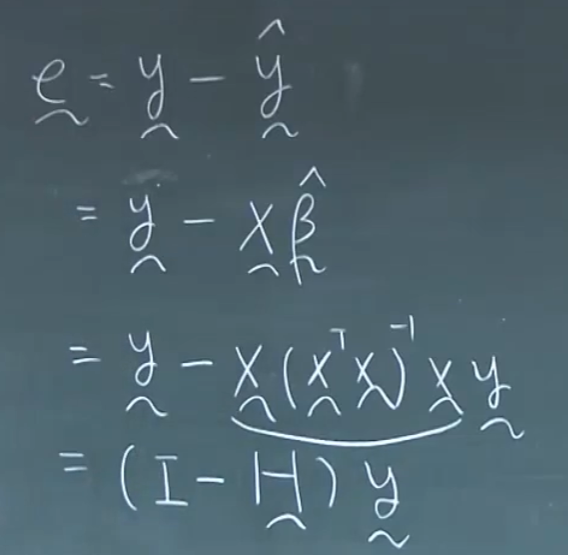 ḛ = y̰ - ŷ̰
= y̰ - X̰ β̰̂
= y̰ - X̰(X̰ᵀX̰)⁻¹X̰y̰
= (I - H̰)y̰